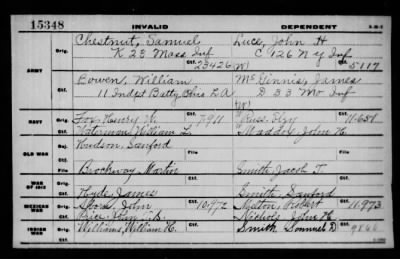 15348 INVALID DEPENDENT 3-312
Orig. Chestnut, Samuel Luce, John H
K 23 Mass Inf C 126 N Y Inf
Ctf. 23426 (N) 5117
ARMY Orig. Bowen, William McGinnis, James
11 Indpt Batty Ohio L A D 33 Mo Inf
Ctf.
NAVY Orig. Fox, Henry M. 7911 Perry 11651
Ctf. Waterman, William L. Maddox, John H.
OLD WAR Orig. Hudson, Sanford
Ctf. Brockway, Martin Smith, Jacob T.
WAR OF 1812 Orig.
Ctf. Hyde, James Smith, Sanford
MEXICAN WAR Orig. John 10972 Melton, Robert 11973
Ctf. Price, John Nichols, John H.
INDIAN WAR Orig. Williams, William H. Smith Samuel D 9866
Ctf.